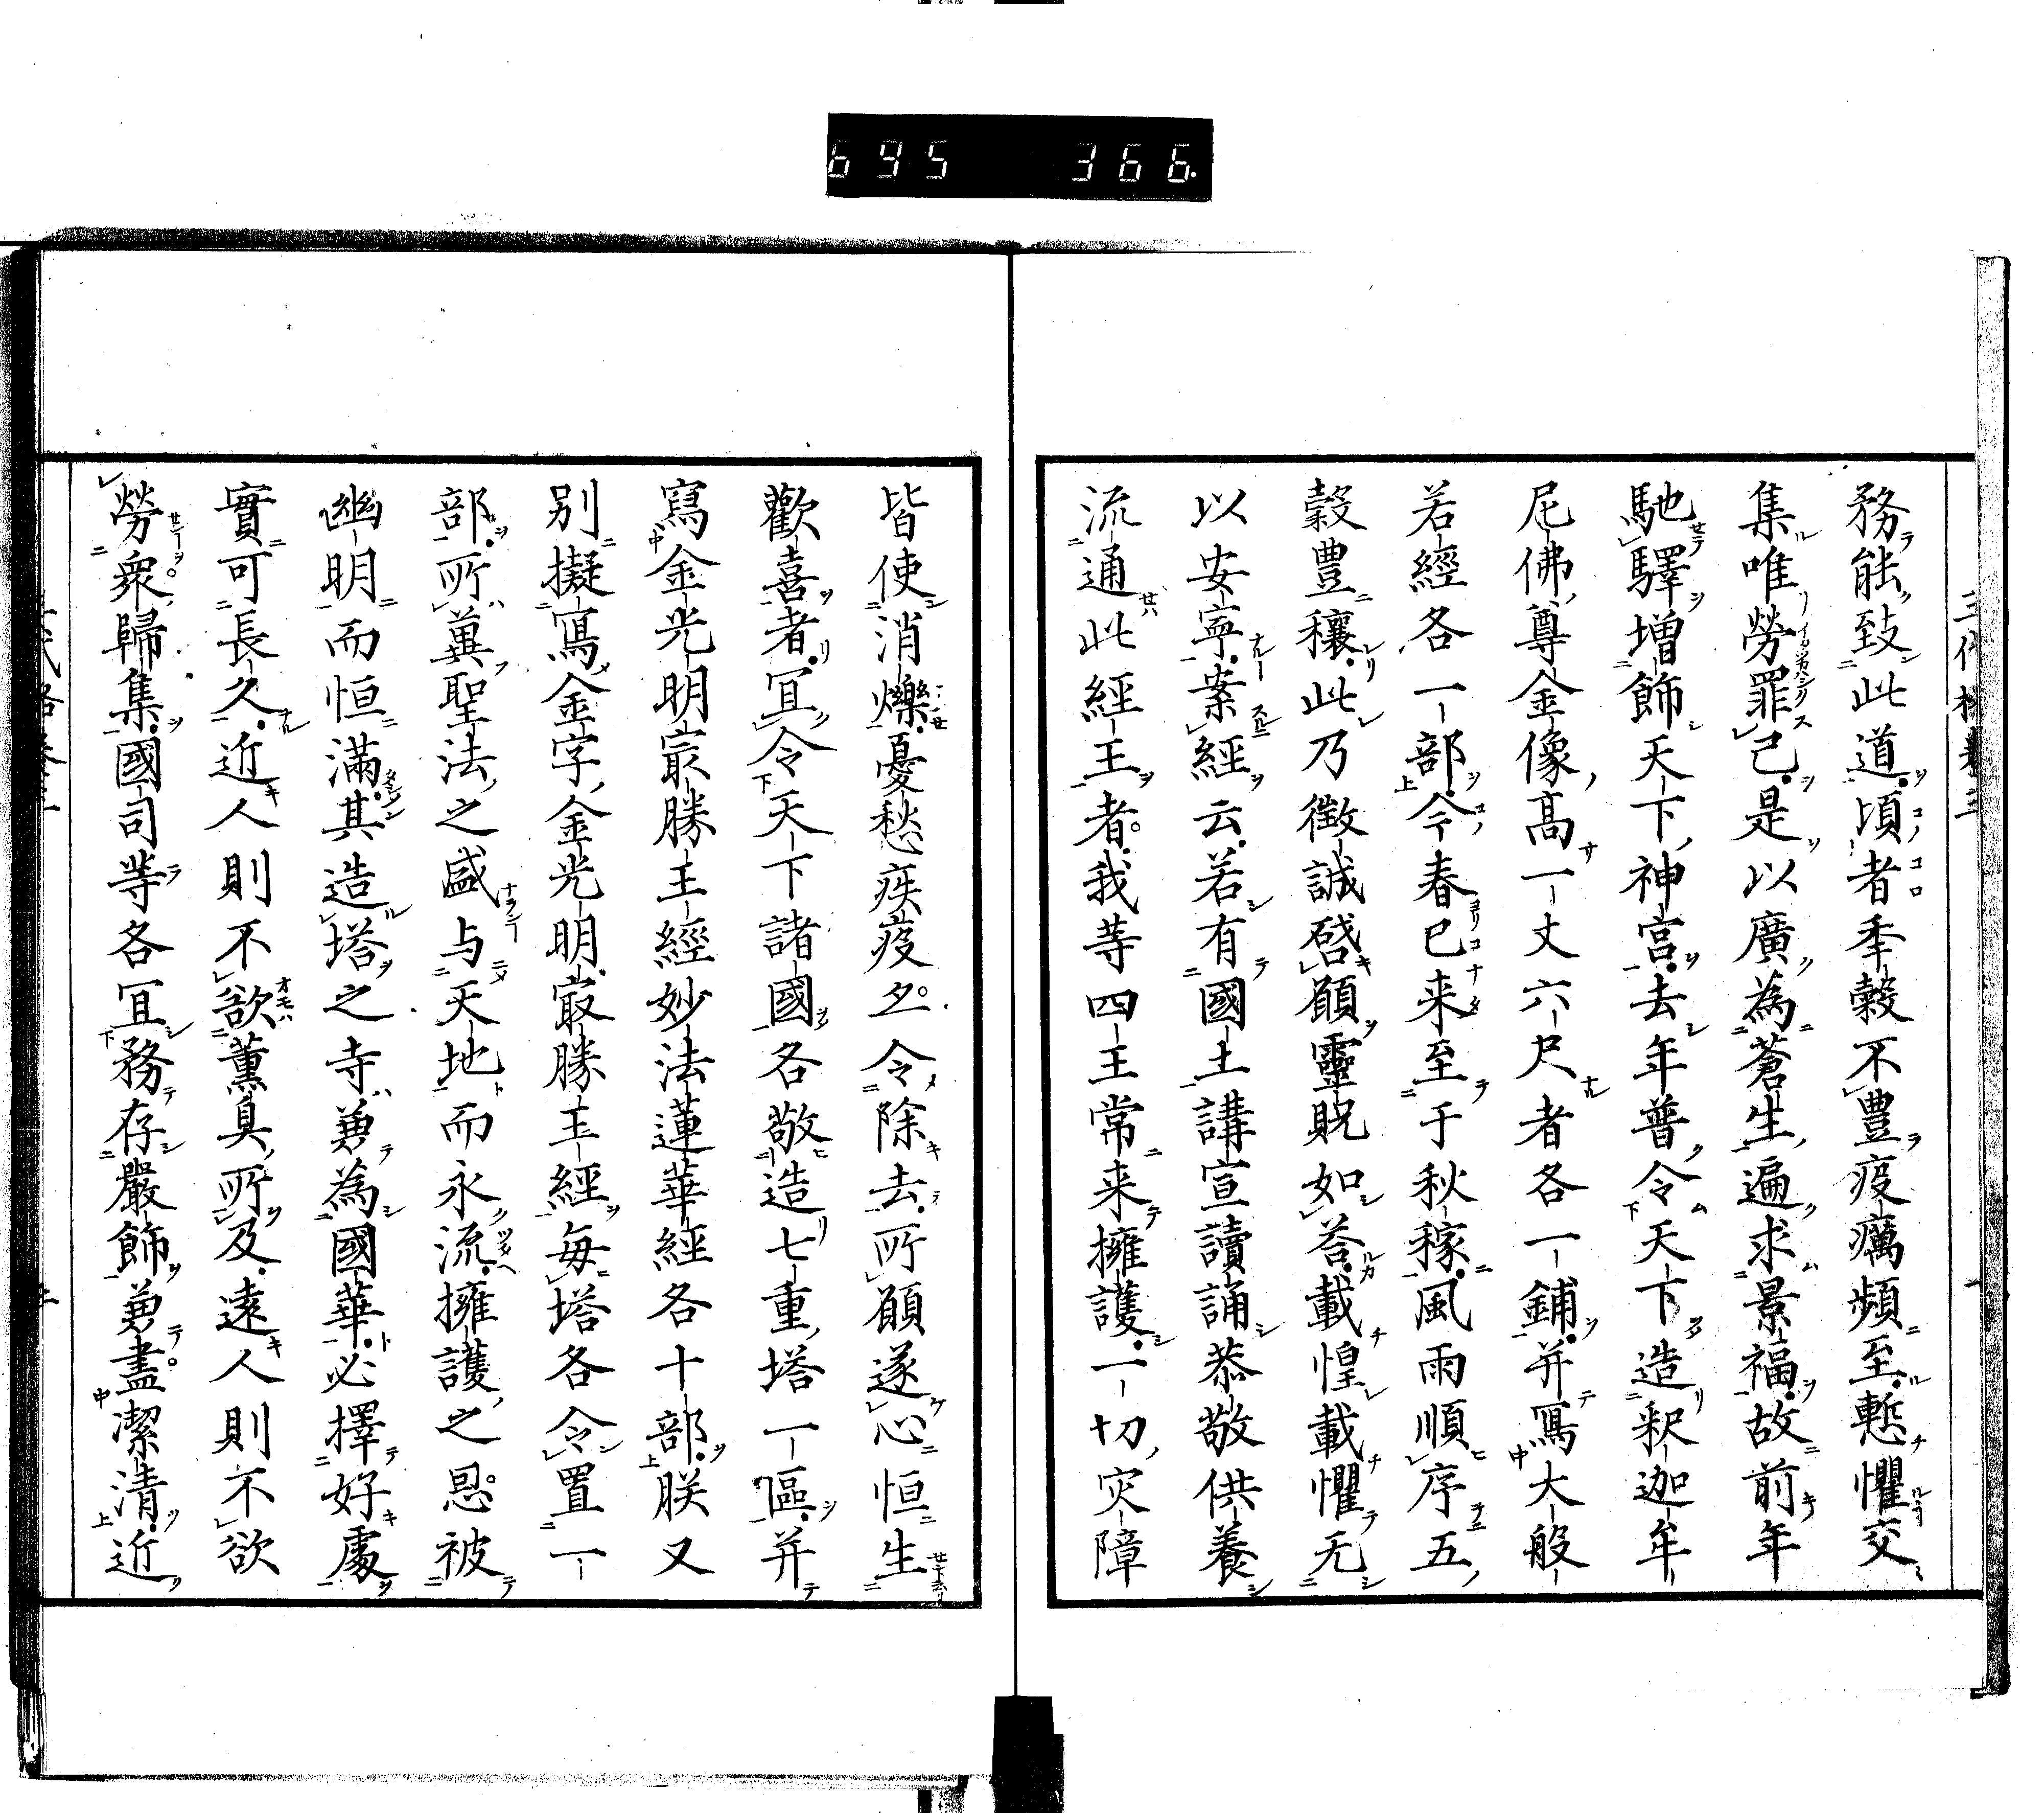 695 366
務能致此道頃者年穀不豊疫癘頻至慙懼交
集唯勞罪己是以廣為蒼生遍求景福故前年
馳驛増飾天下神宮去年普令天下造釈迦牟
尼佛尊金像高一丈六尺者各一鋪并寫大般
若經各一部今春已来至于秋稼風雨順序五
穀豊穰此乃徴誠啓願靈貺如荅載惶載懼无
以安寧案經云若有國土講宣讀誦恭敬供養
流通此經王者我等四王常来擁護一切灾障
皆使消爍憂愁疾疫亦令除去所願遂心恒生
歡喜者冝令天下諸國各敬造七重塔一區并
寫金光明㝡勝王經妙法蓮華經各十部朕又
別擬寫金字金光明㝡勝王經毎塔各令置一
部所冀聖法之盛与天地而永流擁護之恩被
幽明而恒滿其造塔之寺兼為國華必擇好處
實可長久近人則不欲薫臭所及遠人則不欲
勞衆歸集國司等各冝務存嚴飾兼盡潔清近